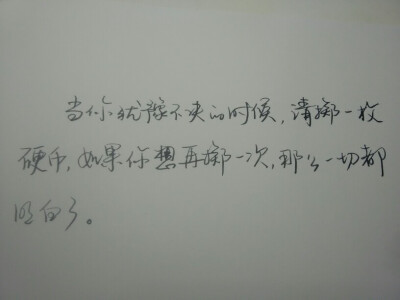 当你犹豫不决的时候,请掷一枚
硬币,如果你想再掷一次,那么一切都
明白了。